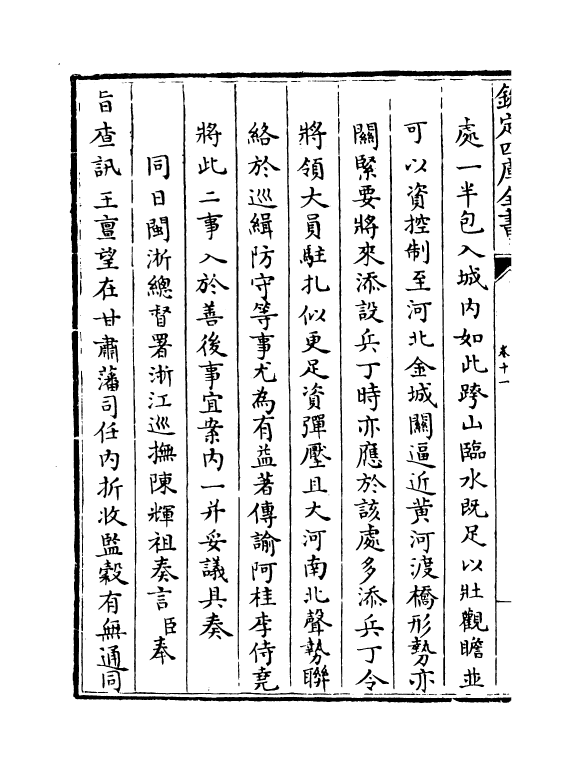 欽定四庫全書
卷十一
處一半包入城內如此跨山臨水既足以壯觀瞻並
可以資控制至河北金城關逼近黃河渡橋形勢亦
關緊要將來添設兵丁時亦應於該處多添兵丁令
將領大員駐扎似更足資彈壓且大河南北聲勢聯
絡於巡緝防守等事尤為有益著傳諭阿桂李侍堯
將此二事入於善後事宜案內一并妥議具奏
同日閩浙總督署浙江巡撫陳輝祖奏言臣奉
旨查訊王亶望在甘肅藩司任內折收監穀有無通同